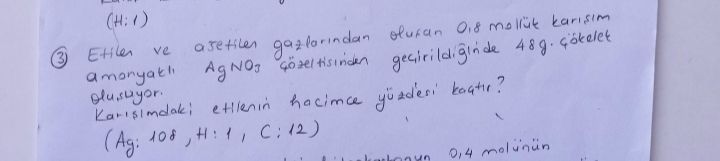 (H:1)
③ Etilen ve asetilen gazlarından oluşan 0,8 mollük karışım
amonyaklı AgNO3 çözeltisinden geçirildiğinde 48g. çökelek
oluşuyor.
Karışımdaki etilenin hacimce yüzdesi kaçtır?
(Ag: 108, H:1, C:12)
0,4 molünün